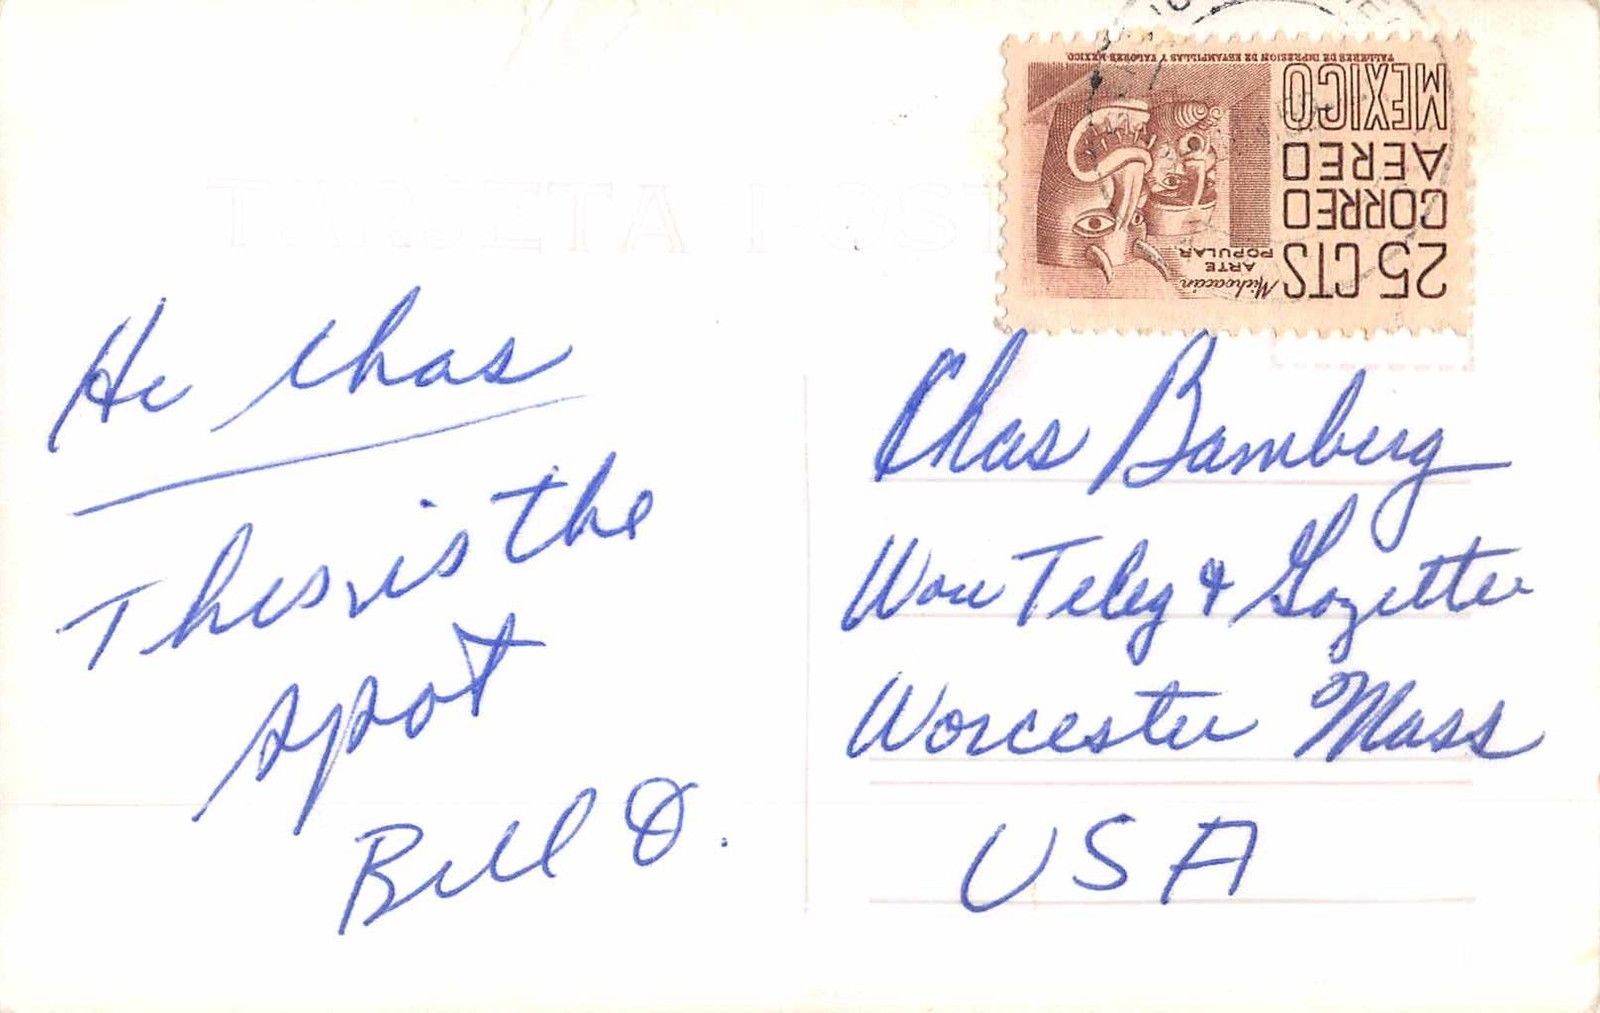 TARJETA POSTAL
25 CTS
CORREO
AEREO
MEXICO
Michoacán
ARTE
POPULAR
TALLERES DE IMPRESION DE ESTAMPILLAS Y VALORES-MEXICO
Hi Chas
This is the
spot
Bill O.
Chas Bamberg
Wor Teleg & Gazette
Worcester Mass
USA